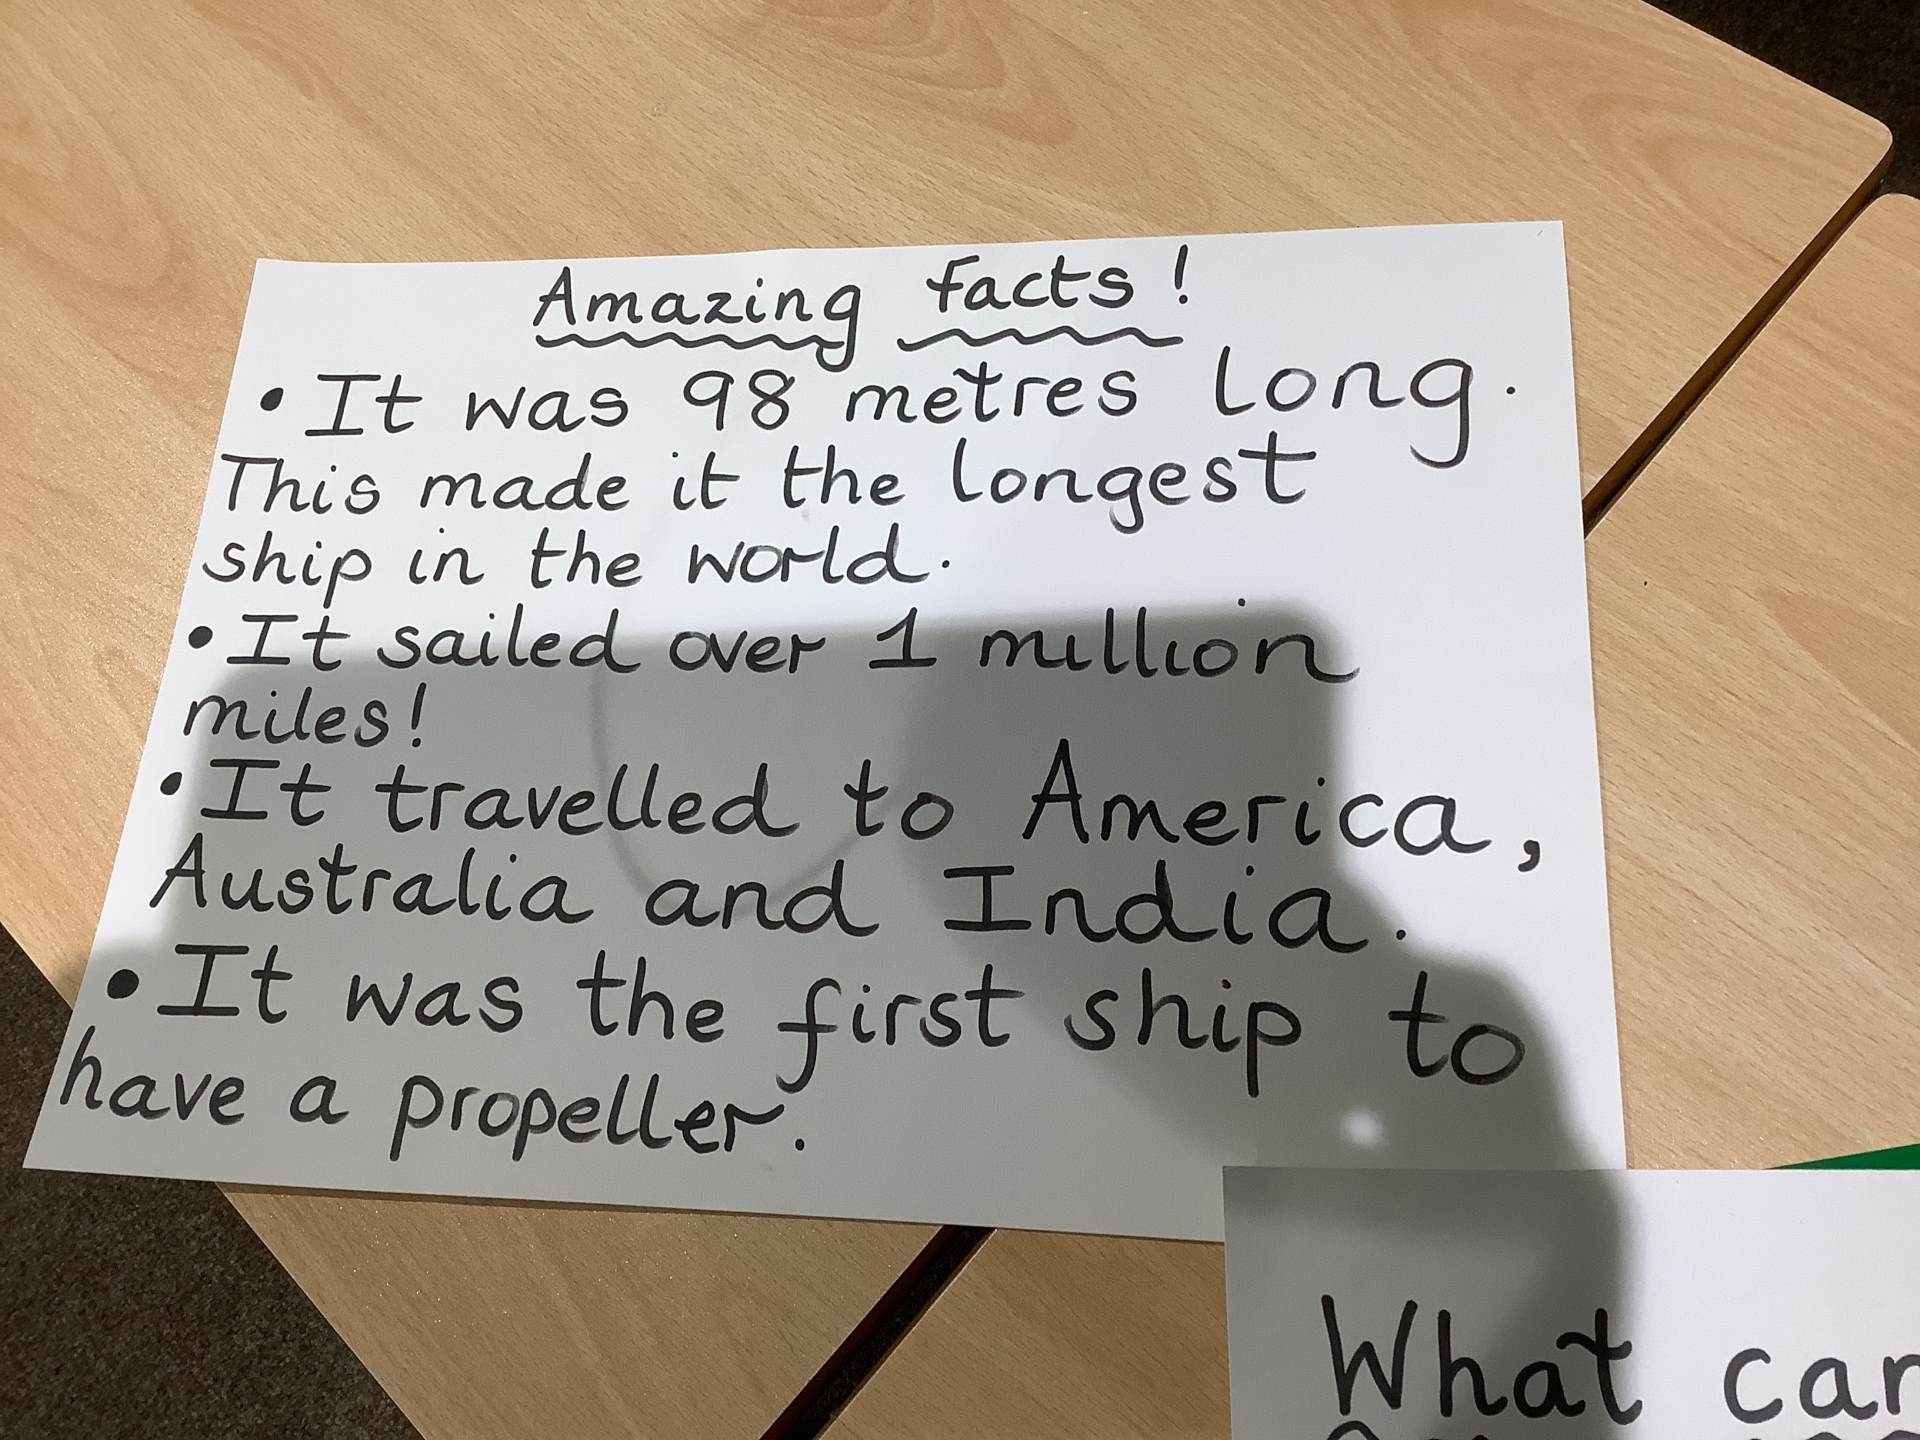 Amazing facts!
• It was 98 metres long.
This made it the longest
ship in the world.
• It sailed over 1 million
miles!
• It travelled to America,
Australia and India.
• It was the first ship to
have a propeller.
What